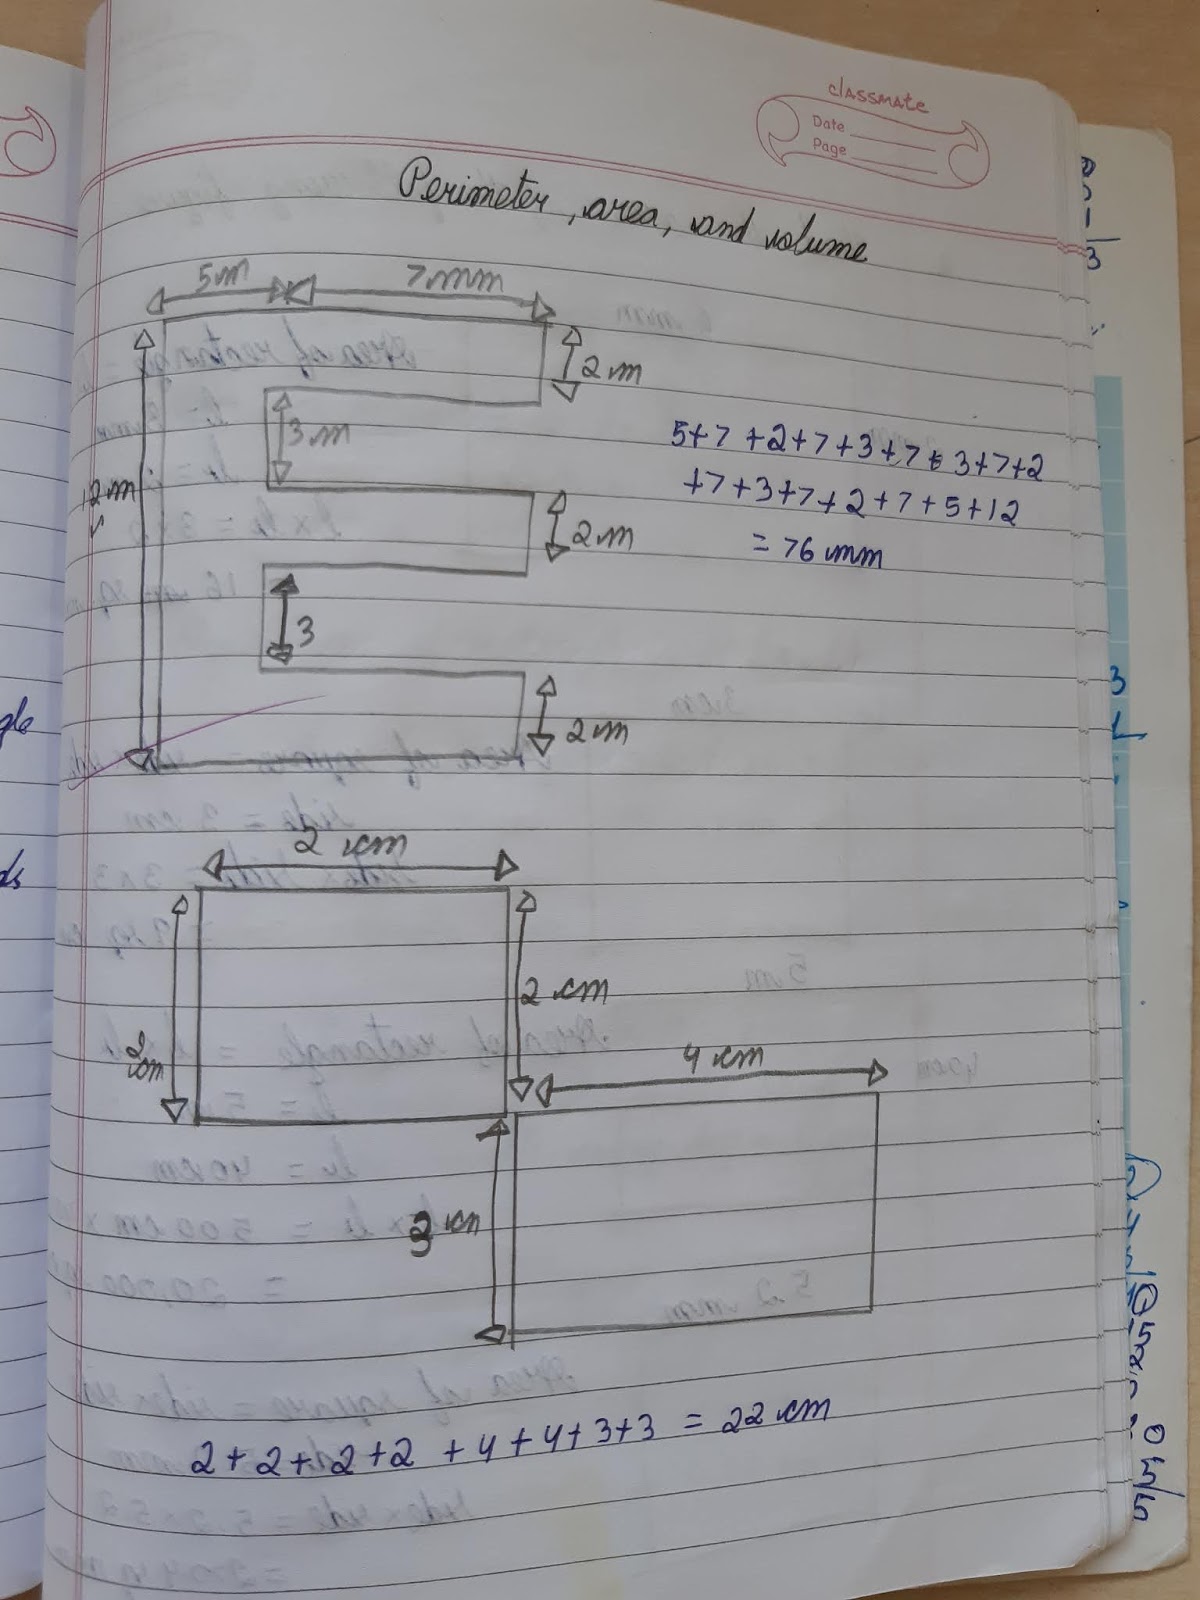 classmate
Date
Page
Perimeter, area, and volume
5m 7mm
2 m
3 m
2 m
2 m
3
2 m
5+7 +2+7+3+7+3+7+2
+7+3+7+2+7+5+12
= 76 mm
2 cm
2 cm
2cm
4 cm
3 cm
2+2+2+2 +4+4+3+3 = 22 cm